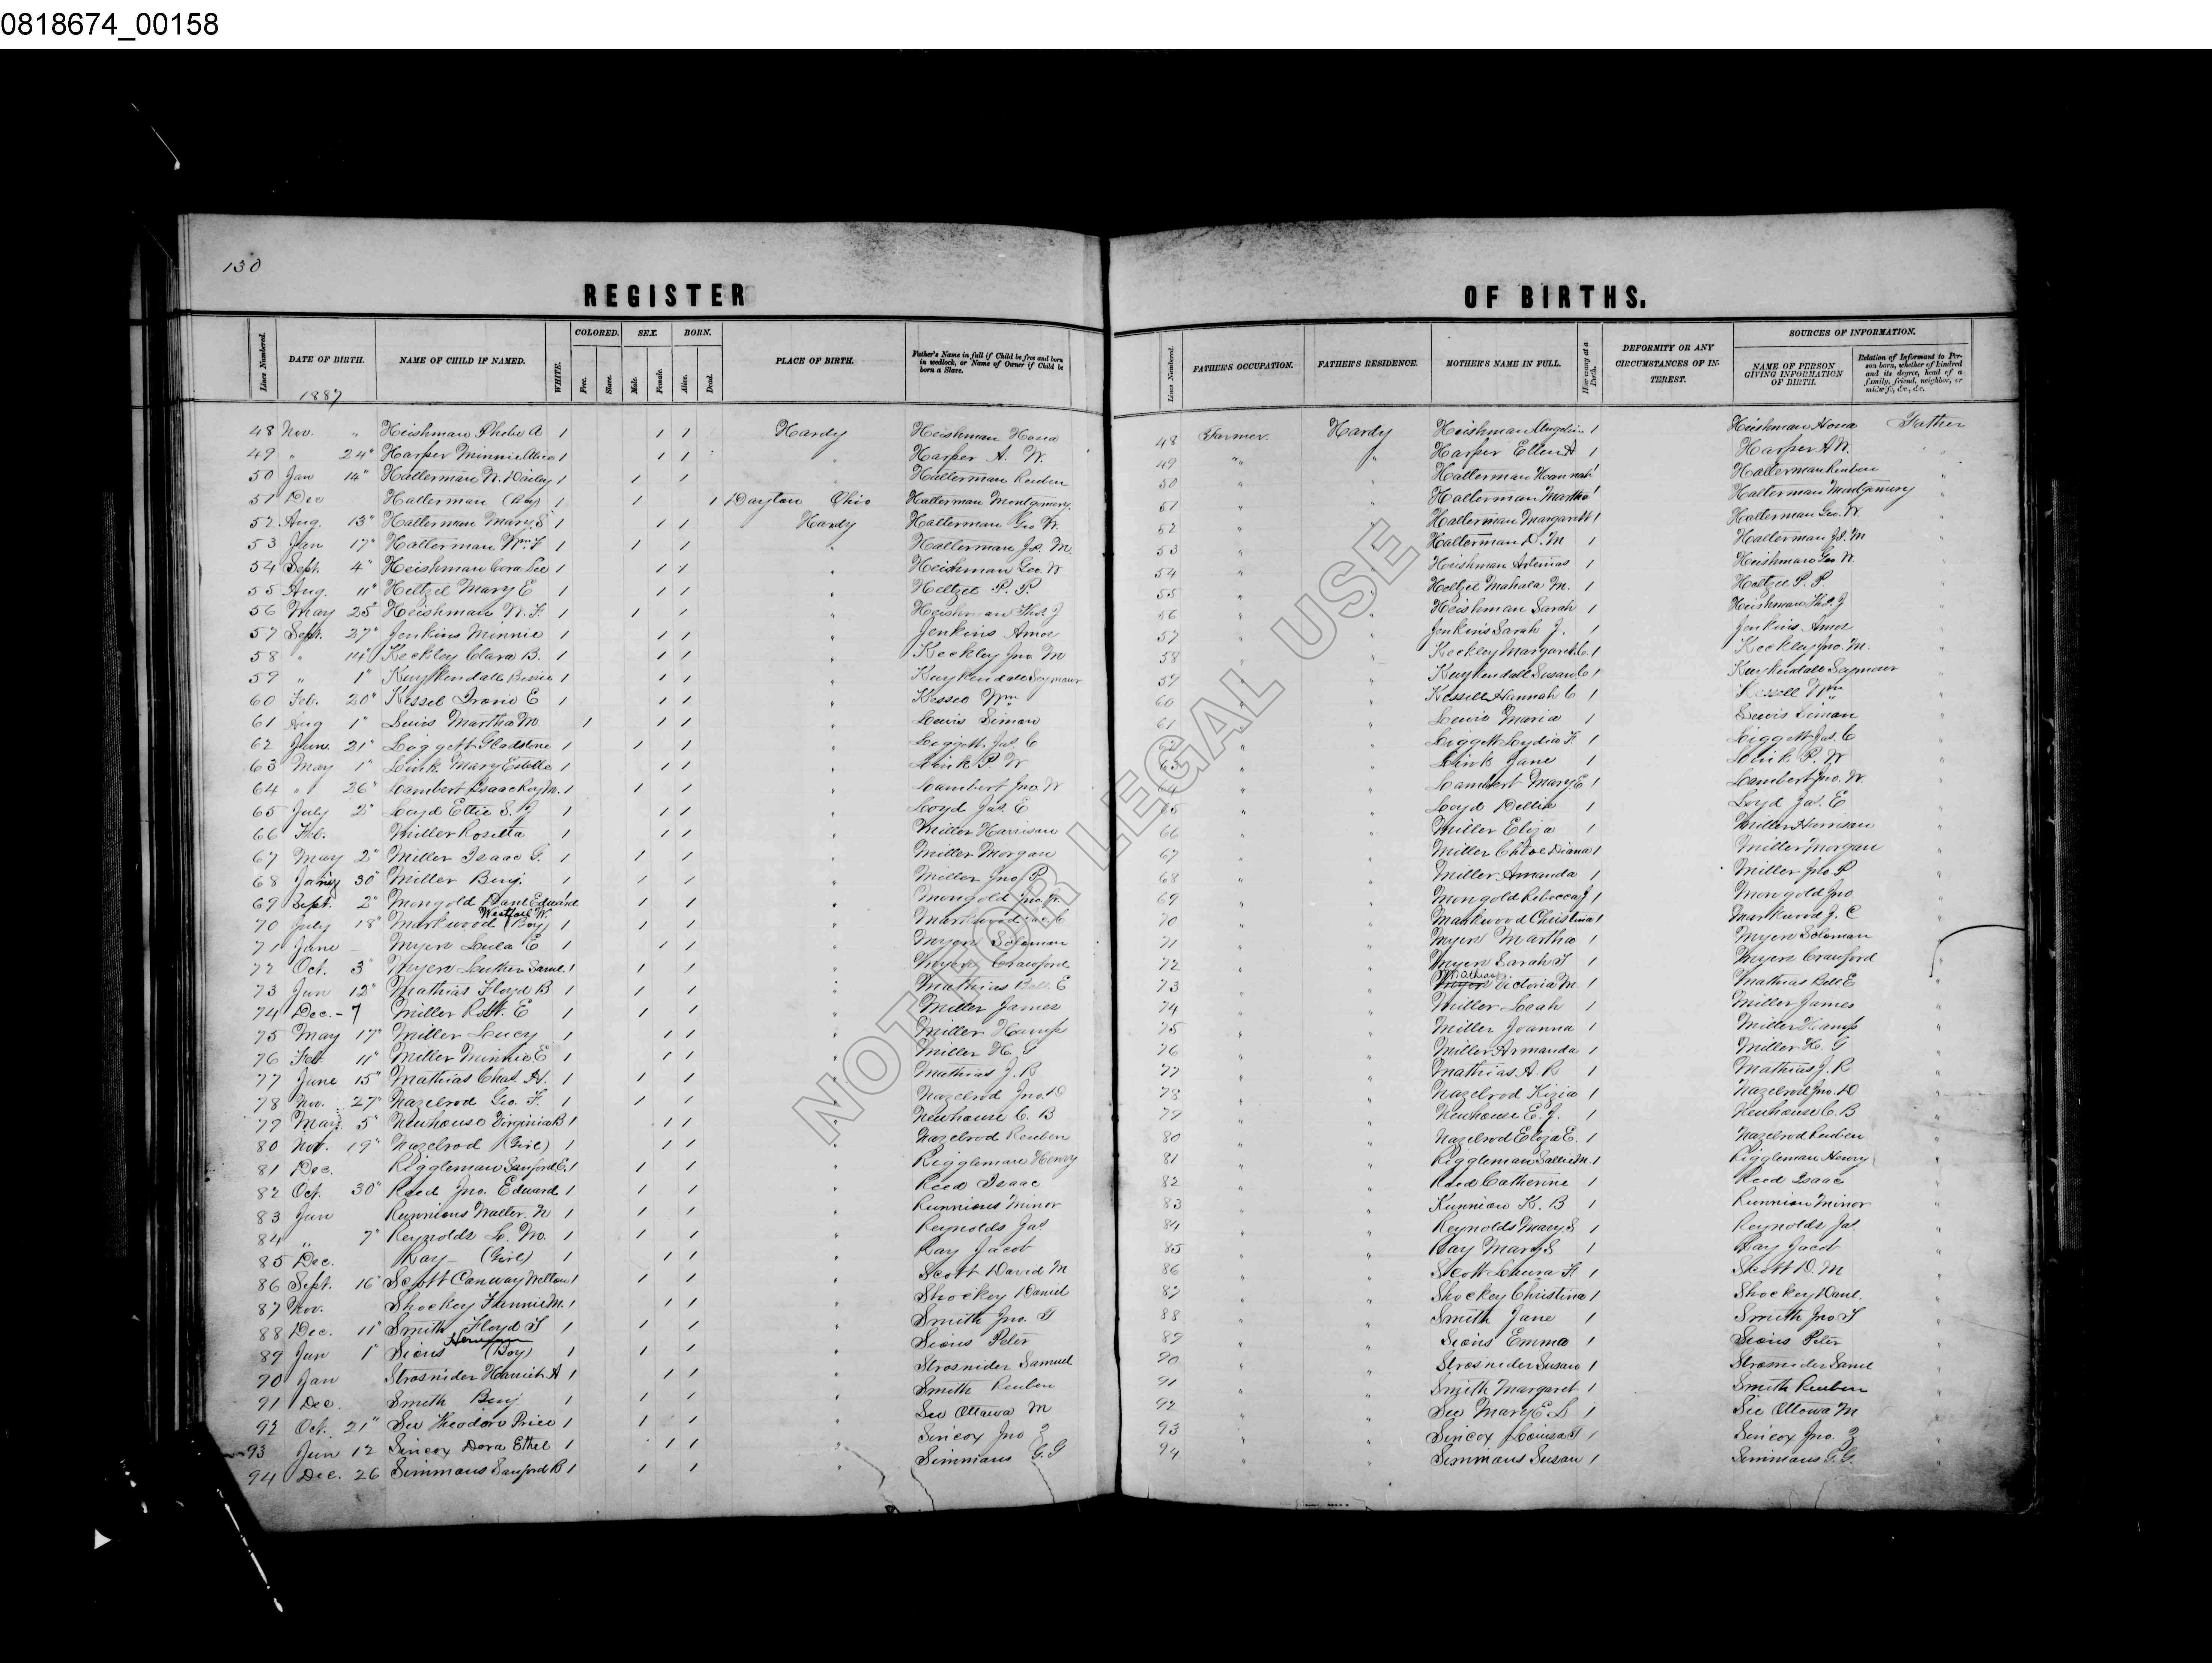 0818674_00158
130
REGISTER OF BIRTHS.
Lines Numbered. DATE OF BIRTH. NAME OF CHILD IF NAMED. WHITE. COLORED. Free. Slave. SEX. Male. Female. BORN. Alive. Dead. PLACE OF BIRTH. Father's Name in full if Child be free and born in wedlock, or Name of Owner if Child be born a Slave. Lines Numbered. FATHER'S OCCUPATION. FATHER'S RESIDENCE. MOTHER'S NAME IN FULL. How many at a Birth. DEFORMITY OR ANY CIRCUMSTANCES OF INTEREST. SOURCES OF INFORMATION. NAME OF PERSON GIVING INFORMATION OF BIRTH. Relation of Informant to Person born, whether of kindred and its degree, head of a family, friend, neighbor, or midwife, &c., &c.
1887
48 Nov. " Heishman Phebe A 1 1 1 Hardy Heishman Hosea 48 Farmer. Hardy Heishman 1 Heishman Hosea Father
49 " 24" Harper Minnie Alice 1 1 1 " Harper A. W. 49 " " Harper Ellen A 1 Harper A W. "
50 Jan 14" Halterman W. Dailey 1 1 1 " Halterman Reuben 50 " " Halterman Hannah 1 Halterman Reuben "
51 Dec Halterman (Boy) 1 1 1 Dayton Ohio Halterman Montgomery. 51 " " Halterman Martha 1 Halterman Montgomery "
52 Aug. 13" Halterman Mary S 1 1 1 Hardy Halterman Geo W. 52 " " Halterman Margarett 1 Halterman Geo. W. "
53 Jan 17" Halterman Wm. F 1 1 1 " Halterman Js. M. 53 " " Halterman D. M 1 Halterman Js. M "
54 Sept. 4" Heishman Cora Lee 1 1 1 " Heishman Geo. W 54 " " Heishman Artemas 1 Heishman Geo W. "
55 Aug. 11" Heltzel Mary E 1 1 1 " Heltzel P. P. 55 " " Heltzel Mahala M. 1 Heltzel P. P "
56 May 25" Heishman W. F. 1 1 1 " Heishman Thos. J 56 " " Heishman Sarah 1 Heishman Thos. J "
57 Sept. 27" Jenkins Minnie 1 1 1 " Jenkins Amos 57 " " Jenkins Sarah J. 1 Jenkins Amos "
58 " 14" Keckley Clara B. 1 1 1 " Keckley Jno M 58 " " Keckley Margaret C. 1 Keckley Jno. M. "
59 " 1" Kuykendall Bessie 1 1 1 " Kuykendall Seymour 59 " " Kuykendall Susan C 1 Kuykendall Seymour "
60 Feb. 20" Kessel E 1 1 1 " Kessel Wm 60 " " Kessell Hannah C 1 Kessell Wm "
61 Aug 1" Lewis Martha M 1 1 1 " Lewis Simon 61 " " Lewis Maria 1 Lewis Simon "
62 June 21" Liggett Gladstone 1 1 1 " Liggett Jas. C " " Liggett Lydia F. 1 Liggett Jas. C "
63 May 1" Link Mary Estella 1 1 1 " Link P. W " " Link Jane 1 Link P. W "
64 " 26" Lambert Isaac Roy M. 1 1 1 " Lambert Jno. W " " Lambert Mary E 1 Lambert Jno. W "
65 July 2" Loyd Ettie S. J 1 1 1 " Loyd Jas. E 65 " " Loyd Dellia 1 Loyd Jas. E "
66 Feb. Miller Rosetta 1 1 1 " Miller Harrison 66 " " Miller Eliza 1 Miller Harrison "
67 May 2" Miller Isaac G. 1 1 1 " Miller Morgan 67 " " Miller Chloe Diana 1 Miller Morgan "
68 Jany 30" Miller Benj. 1 1 1 " Miller Jno P. 68 " " Miller Amanda 1 Miller Jno. P "
69 Sept. 2" Mongold Danl Edward 1 1 " Mongold Jno. 69 " " Mongold Rebecca J 1 Mongold Jno. "
Westfall W.
70 July 18" Markwood (Boy) 1 1 1 " Markwood C 70 " " Markwood Christina 1 Markwood J. C "
71 June Myers Lula E 1 1 1 " Myers Soloman 71 " " Myers Martha 1 Myers Soloman "
72 Oct. 3" Myers Luther Saml. 1 1 1 " Myers Crawford 72 " " Myers Sarah F 1 Myers Crawford "
73 Jun 12" Mathias Floyd B 1 1 1 " Mathias E 73 " " Mathias Victoria M 1 Mathias Bell E "
74 Dec. - 7 Miller Robt. E 1 1 1 " Miller James 74 " " Miller Leah 1 Miller James "
75 May 17" Miller Lucy 1 1 1 " Miller Hamp 75 " " Miller Joanna 1 Miller Hamp "
76 Feb 11" Miller Minnie E 1 1 1 " Miller H. G 76 " " Miller Armanda 1 Miller H. G "
77 June 15" Mathias Chas. H. 1 1 1 " Mathias J. R 77 " " Mathias A. R 1 Mathias J. R "
78 Nov. 27" Nazelrod Geo. F. 1 1 1 " Nazelrod Jno. D 78 " " Nazelrod Kizia 1 Nazelrod Jno. D "
79 May. 5" Newhouse Virginia B 1 1 1 " Newhouse C. B 79 " " Newhouse E. J. 1 Newhouse C. B "
80 Nov. 19" Nazelrod (Girl) 1 1 1 " Nazelrod Reuben 80 " " Nazelrod Eliza E. 1 Nazelrod Reuben "
81 Dec. Riggleman Sanford E. 1 1 1 " Riggleman Henry 81 " " Riggleman Sallie M. 1 Riggleman Henry "
82 Oct. 30" Reed Jno. Edward 1 1 1 " Reed Isaac 82 " " Reed Catherine 1 Reed Isaac "
83 Jun Runnions Walter. N 1 1 1 " Runnions Minor 83 " " Runnion K. B 1 Runnion Minor "
84 " 7" Reynolds L. Mo. 1 1 1 " Reynolds Jas 84 " " Reynolds Mary S 1 Reynolds Jas. "
85 Dec. Ray - (Girl) 1 1 1 " Ray Jacob 85 " " Ray Mary S 1 Ray Jacob "
86 Sept. 16" Scott Canway Welton 1 1 1 " Scott David M 86 " " Scott Laura F. 1 Scott D. M "
87 Nov. Shockey Fannie M. 1 1 1 " Shockey Daniel 87 " " Shockey Christina 1 Shockey Danl. "
88 Dec. 11" Smith Floyd T 1 1 1 " Smith Jno. T 88 " " Smith Jane 1 Smith Jno T "
89 Jun 1" Sions (Boy) 1 1 1 " Sions Peter 89 " " Sions Emma 1 Sions Peter "
90 Jan Strosnider Harriet A 1 1 1 " Strosnider Samuel 90 " " Strosnider Susan 1 Strosnider Saml "
91 Dec. Smith Benj 1 1 1 " Smith Reuben 91 " " Smith Margaret 1 Smith Reuben "
92 Oct. 21" See Theodore Price 1 1 1 " See Ottawa M 92 " " See Mary E. S 1 See Ottawa M "
93 Jun 12 Sincox Dora Ethel 1 1 1 " Sincox Jno Z 93 " " Sincox Louisa T 1 Sincox Jno. Z "
94 Dec. 26 Simmons Sanford B 1 1 1 " Simmons G. G 94 " " Simmons Susan 1 Simmons G. G. "
NOT FOR LEGAL USE